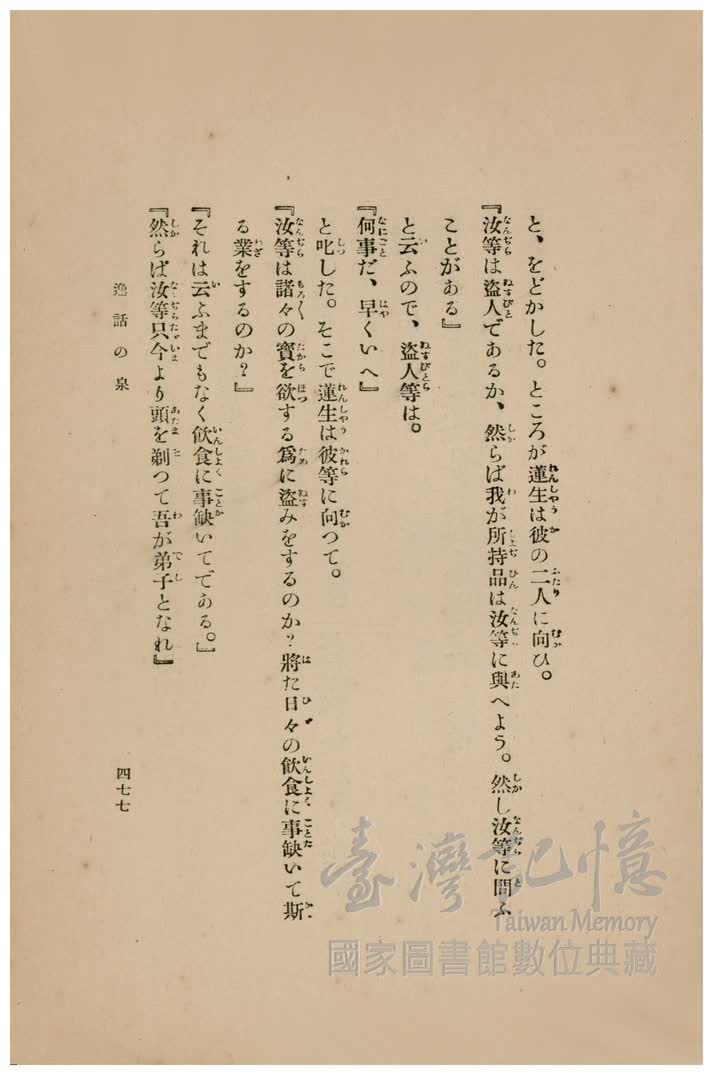 と、をどかした。ところが蓮生は彼の二人に向ひ。
『汝等は盜人であるか、然らば我が所持品は汝等に與へよう。然し汝等に問ふ
ことがある』
と云ふので、盜人等は。
『何事だ、早くいへ』
と叱した。そこで蓮生は彼等に向つて。
『汝等は諸々の寳を欲する爲に盜みをするのか？將た日々の飮食に事缺いて斯
る業をするのか？』
『それは云ふまでもなく飮食に事缺いてである。』
『然らば汝等只今より頭を剃つて吾が弟子となれ』
逸話の泉
四七七
臺灣記憶
Taiwan Memory
國家圖書館數位典藏